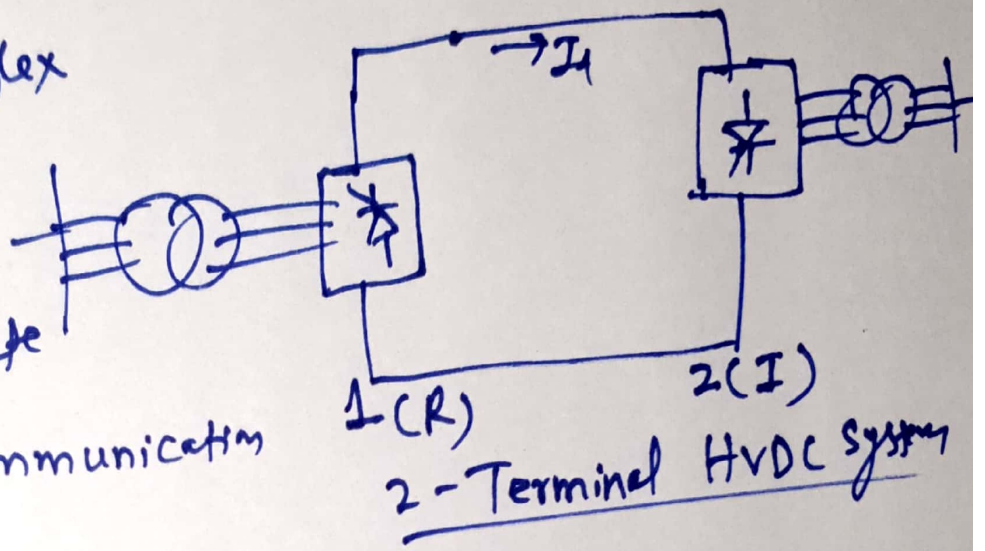 lex
→ I₁
te
1 (R)
2 (I)
mmunication
2 - Terminal HVDC System